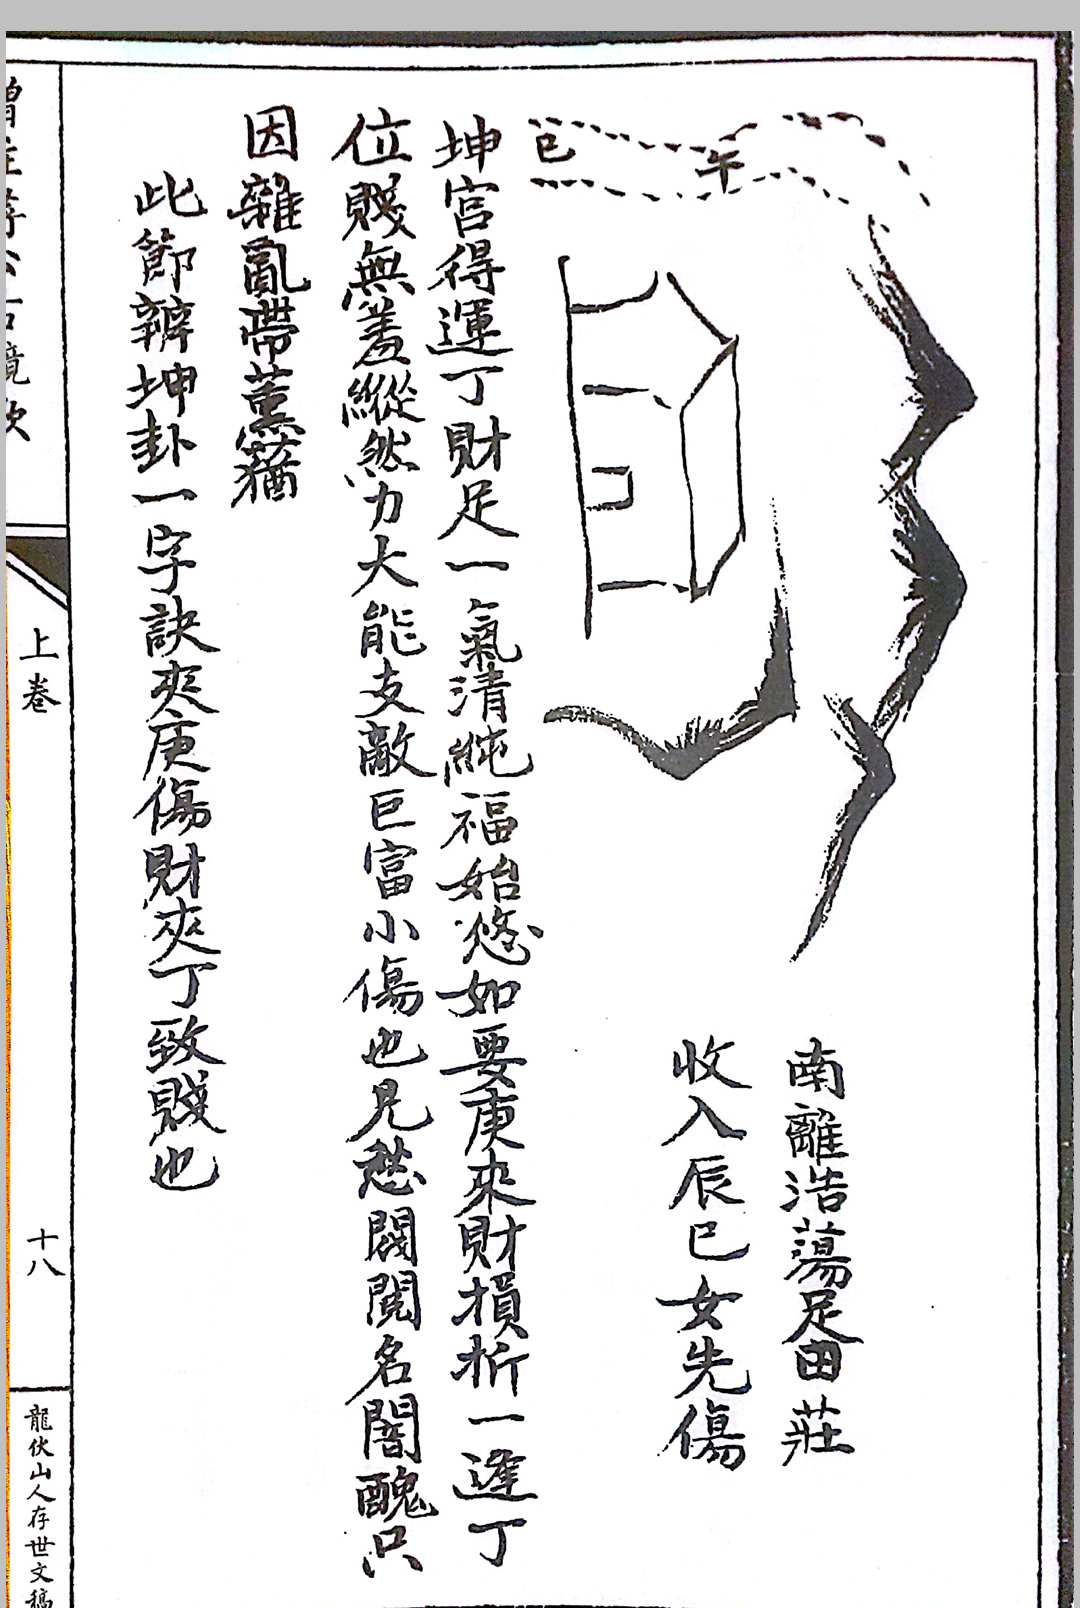 巳
午
南離浩蕩足田莊
收入辰巳女先傷
坤宮得運丁財足一氣清純福始悠如要庚來財損折一逢丁
位賤無羞縱然力大能支敵巨富小傷也見愁閥閱名閨醜只
因雜亂帶薰蕕
此節辨坤卦一字訣夾庚傷財夾丁致賤也
上卷
十八
龍伏山人存世文稿